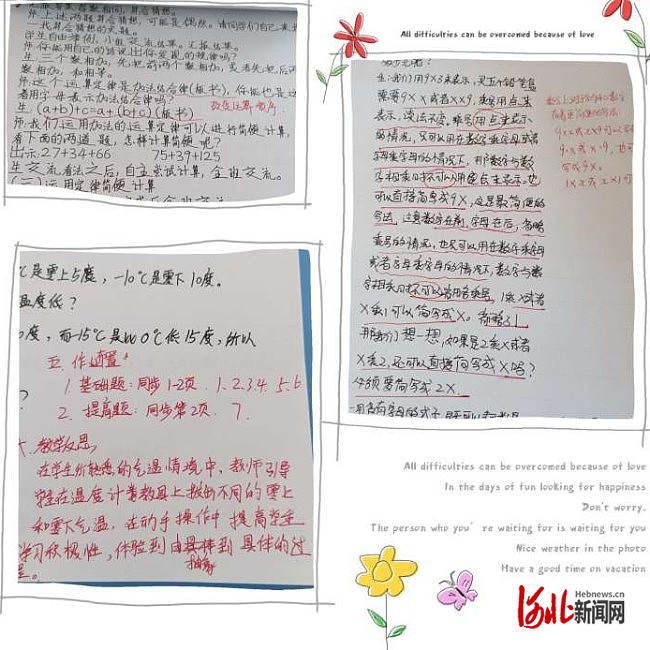 All difficulties can be overcomed because of love
师:上述两题算合猜想,可能是偶然。请同学们自己来
生:三个数相加,先把前两个数相加,或者先把后两
数相加,和相等。
师:这个运算定律是加法结合律(板书),你能也
者用字母表示加法结合律吗?
生:(a+b)+c=a+(b+c)(板书)
师:我们运用加法的运算定律可以进行简便计算,
看下面的两道题,怎样计算简便呢?
出示:27+34+66 75+39+125
生交流看法之后,自主尝试计算,全班交流。
(二)运用定律简便计算
℃是零上5度,-10℃是零下10度。
温度低?
度,而-15℃是比0℃低15度,所以
五.作业布置
1.基础题:同步1-2页.1.2.3.4.5.6
2.提高题:同步第2页.7.
十.教学反思
在学生所熟悉的气温情境中,教师引导
学生在温度计教具上拨出不同的零上
和零下气温,在动手操作中提高学生
学习积极性,体验到由具体到
抽象
具体的过
生:我们用9×3来表示,买五个铅笔盒
需要9×x或者x×9,乘号用点来
表示,没法不变,乘号用点来表示
的情况,只可以用在数字乘字母或者
字母乘字母的情况下,那数字与数
字相乘只能可以用使点来表示。也
可以直接简写成9x,这是最简便的
写法,注意数字在前,字母在后,省略
乘号的情况,也只可以用在数字乘字母
或者字母乘字母的情况下,数字与数
字相乘只不可以省略乘号,1乘x或者
x乘1可以简写成x。省略了1
那咱们想一想,如果是2乘x或者
x乘2,还可以直接简写成x吗?
必须要简写成2x.
All difficulties can be overcomed because of love
In the days of fun looking for happiness
Don't worry.
The person who you're waiting for is waiting for you
Nice weather in the photo
Have a good time on vacation
Hebnews.cn
河北新闻网